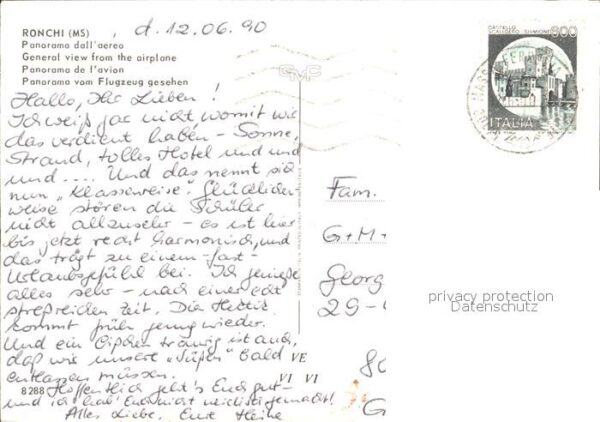 RONCHI (MS) , d. 12.06.90
Panorama dall'aereo
General view from the airplane
Panorama de l'avion
Panorama vom Flugzeug gesehen
Hallo, Ihr Lieben !
Ich weiß gar nicht womit wir
das verdient haben - Sonne,
Strand, tolles Hotel und und
und .... Und das nennt sich
nun "Klassenreise". Glücklicher-
weise stören die Schüler
nicht allzusehr - es ist hier
bis jetzt recht harmonisch, und
das trägt zu einem -fast-
Urlaubsgefühl bei. Ich genieße
alles sehr - nach einer echt
streßreichen Zeit. Die Hektik
kommt früh genug wieder.
Und ein bißchen traurig ist auch,
daß wir unsere "Süßen" bald
entlassen müssen.
Hoffentlich geht's Euch gut -
und ich hab' Euch nicht neidisch gemacht!
Alles Liebe. Eure Heike
8288
VE
VI VI
CASTELLO
SCALIGERO - SIRMIONE
800
ITALIA
Fam.
G+M+
Georg
29-
privacy protection
Datenschutz
80
G